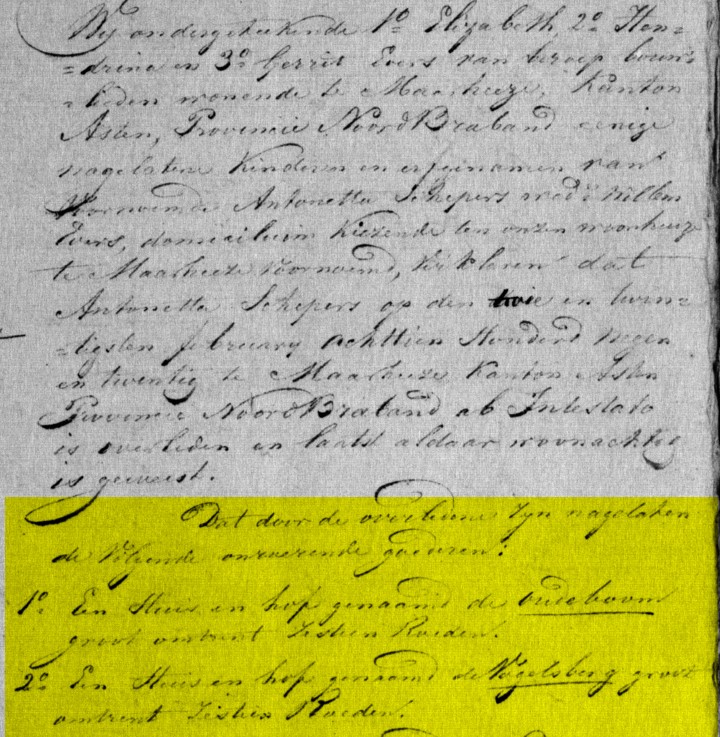 Wij ondergetekende 1º Elizabeth, 2º Hen=
=drina en 3º Gerrit Evers van beroep bouw=
=lieden wonende te Maarheeze, Kanton
Asten, Provincie Noord Braband eenige
nagelatene Kinderen en erfgenamen van
Voornoemde Antonetta Schepers wede Willem
Evers, domicilium kiezende ten onzen woonhuize
te Maarheeze Voornoemd, verklaren dat
Antonetta Schepers op den twee en twin=
=tigsten february achttien Honderd negen
en twentig te Maarheeze Kanton Asten
Provincie Noord Braband ab Intestato
is overleden en laatst aldaar woonachtig
is geweest.
Dat door de overledene zyn nagelaten
de Volgende onroerende goederen:
1º Een Huis en hof genaamd de oudeboom
groot omtrent Zestien Roeden.
2º Een Huis en hof genaamd de Vogelsberg groot
omtrent Zestien Roeden.